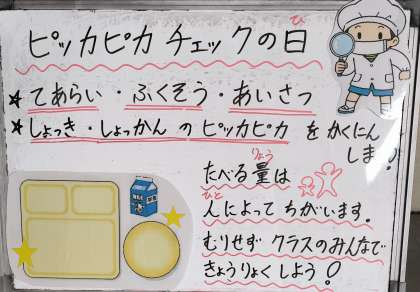 ピッカピカ チェックの日
ひ
★ てあらい・ふくそう・あいさつ
★ しょっき・しょっかん の ピッカピカ を かくにん
しま
りょう
たべる量は
ひと
人によって ちがいます.
むりせず クラスのみんなで
きょうりょくしよう!